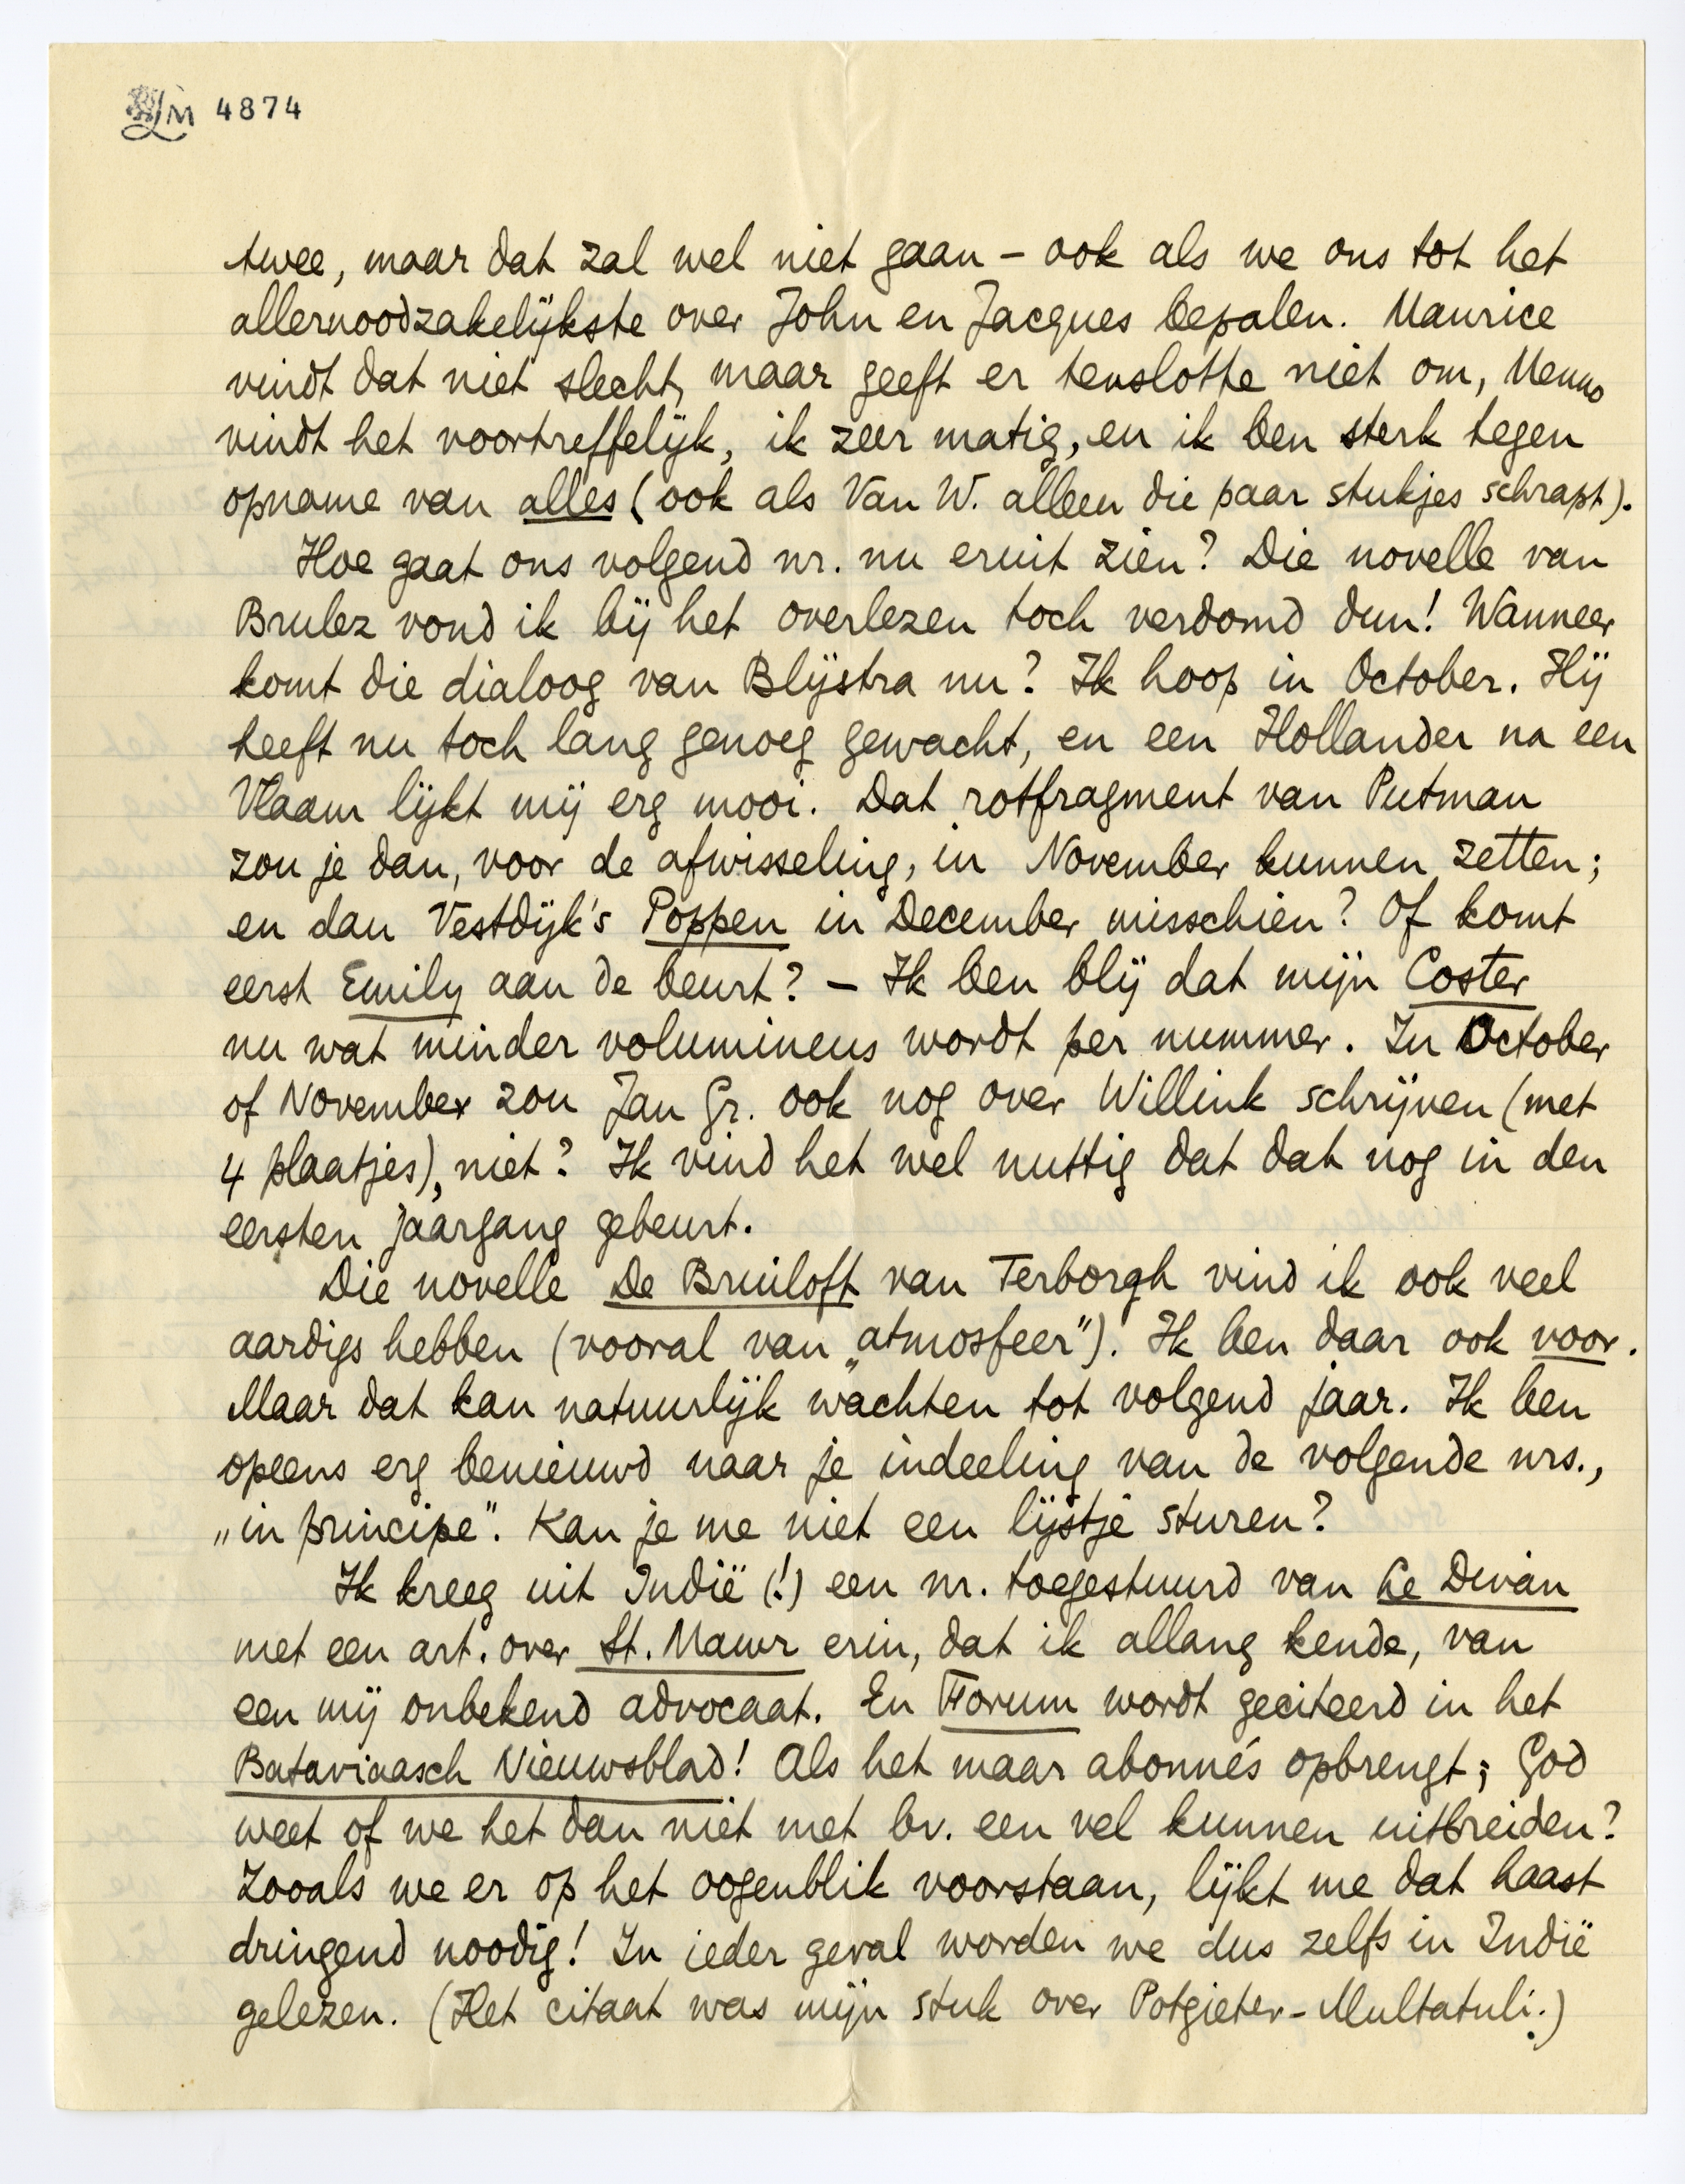 4874
twee, maar dat zal wel niet gaan – ook als we ons tot het
allernoodzakelijkste over John en Jacques bepalen. Maurice
vindt dat niet slecht, maar geeft er tenslotte niet om, Menno
vindt het voortreffelijk, ik zeer matig, en ik ben sterk tegen
opname van alles (ook als Van W. alleen die paar stukjes schrapt).
Hoe gaat ons volgend nr. nu eruit zien? Die novelle van
Brulez vond ik bij het overlezen toch verdomd dun! Wanneer
komt die dialoog van Blijstra nu? Ik hoop in October. Hij
heeft nu toch lang genoeg gewacht, en een Hollander na een
Vlaam lijkt mij erg mooi. Dat rotfragment van Putman
zou je dan, voor de afwisseling, in November kunnen zetten;
en dan Vestdijk's Poppen in December misschien? Of komt
eerst Emily aan de beurt? – Ik ben blij dat mijn Coster
nu wat minder volumineus wordt per nummer. In October
of November zou Jan Gr. ook nog over Willink schrijven (met
4 plaatjes), niet? Ik vind het wel nuttig dat dat nog in den
eersten jaargang gebeurt.
Die novelle De Bruiloft van Terborgh vind ik ook veel
aardigs hebben (vooral van „atmosfeer"). Ik ben daar ook voor.
Maar dat kan natuurlijk wachten tot volgend jaar. Ik ben
opeens erg benieuwd naar je indeeling van de volgende nrs.,
„in principe". Kan je me niet een lijstje sturen?
Ik kreeg uit Indië (!) een nr. toegestuurd van Le Divan
met een art. over St. Mawr erin, dat ik allang kende, van
een mij onbekend advocaat. En Forum wordt geciteerd in het
Bataviaasch Nieuwsblad! Als het maar abonnés opbrengt; God
weet of we het dan niet met bv. een vel kunnen uitbreiden?
Zooals we er op het oogenblik voorstaan, lijkt me dat haast
dringend noodig! In ieder geval worden we dus zelfs in Indië
gelezen. (Het citaat was mijn stuk over Potgieter-Multatuli.)